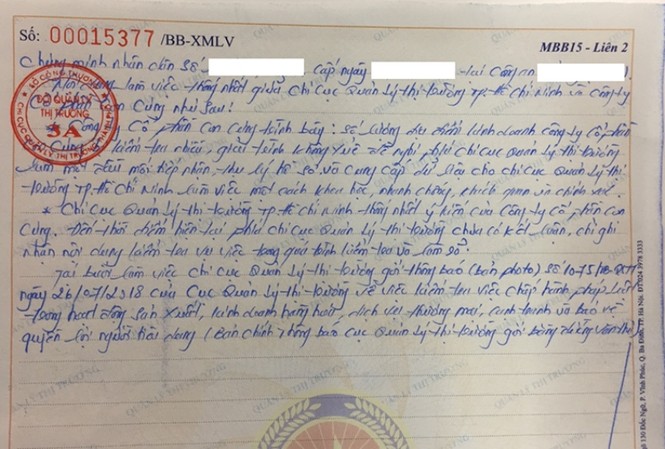 Số: 00015377 /BB-XMLV
MBB15 - Liên 2
Chứng minh nhân dân số cấp ngày tại Công an
Nội dung làm việc thống nhất giữa Chi cục Quản lý thị trường TP. Hồ Chí Minh và Công ty
Cổ phần Con Cưng như sau:
* Công ty Cổ phần Con Cưng trình bày: số lượng địa điểm kinh doanh công ty cổ phần
Con Cưng kiểm tra nhiều, giải trình không xuể đề nghị phía Chi cục Quản lý thị trường
làm một đầu mối tiếp nhận, thụ lý hồ sơ và cung cấp dữ liệu cho chi cục Quản lý thị
trường TP. Hồ Chí Minh làm việc một cách khoa học, nhanh chóng, khách quan và chính xác.
* Chi cục Quản lý thị trường TP. Hồ Chí Minh thống nhất ý kiến của Công ty cổ phần Con
Cưng. Đến thời điểm hiện tại phía Chi cục Quản lý thị trường chưa có kết luận, chỉ ghi
nhận nội dung kiểm tra vụ việc trong quá trình kiểm tra và làm rõ.
Tại buổi làm việc Chi cục Quản lý thị trường gởi thông báo (bản photo) số
ngày 26/07/2018 của Cục Quản lý thị trường về việc kiểm tra việc chấp hành pháp luật
trong hoạt động sản xuất, kinh doanh hàng hóa, dịch vụ thương mại, cạnh tranh và bảo vệ
quyền lợi người tiêu dùng (Bản chính thông báo Cục Quản lý thị trường gởi bằng đường văn thư)
BỘ CÔNG THƯƠNG
ĐỘI QUẢN LÝ
THỊ TRƯỜNG
3A
QUẢN LÝ THỊ TRƯỜNG
130 Đốc Ngữ, P. Vĩnh Phúc, Q. Ba Đình, TP. Hà Nội. ĐT: 024 3978 3333